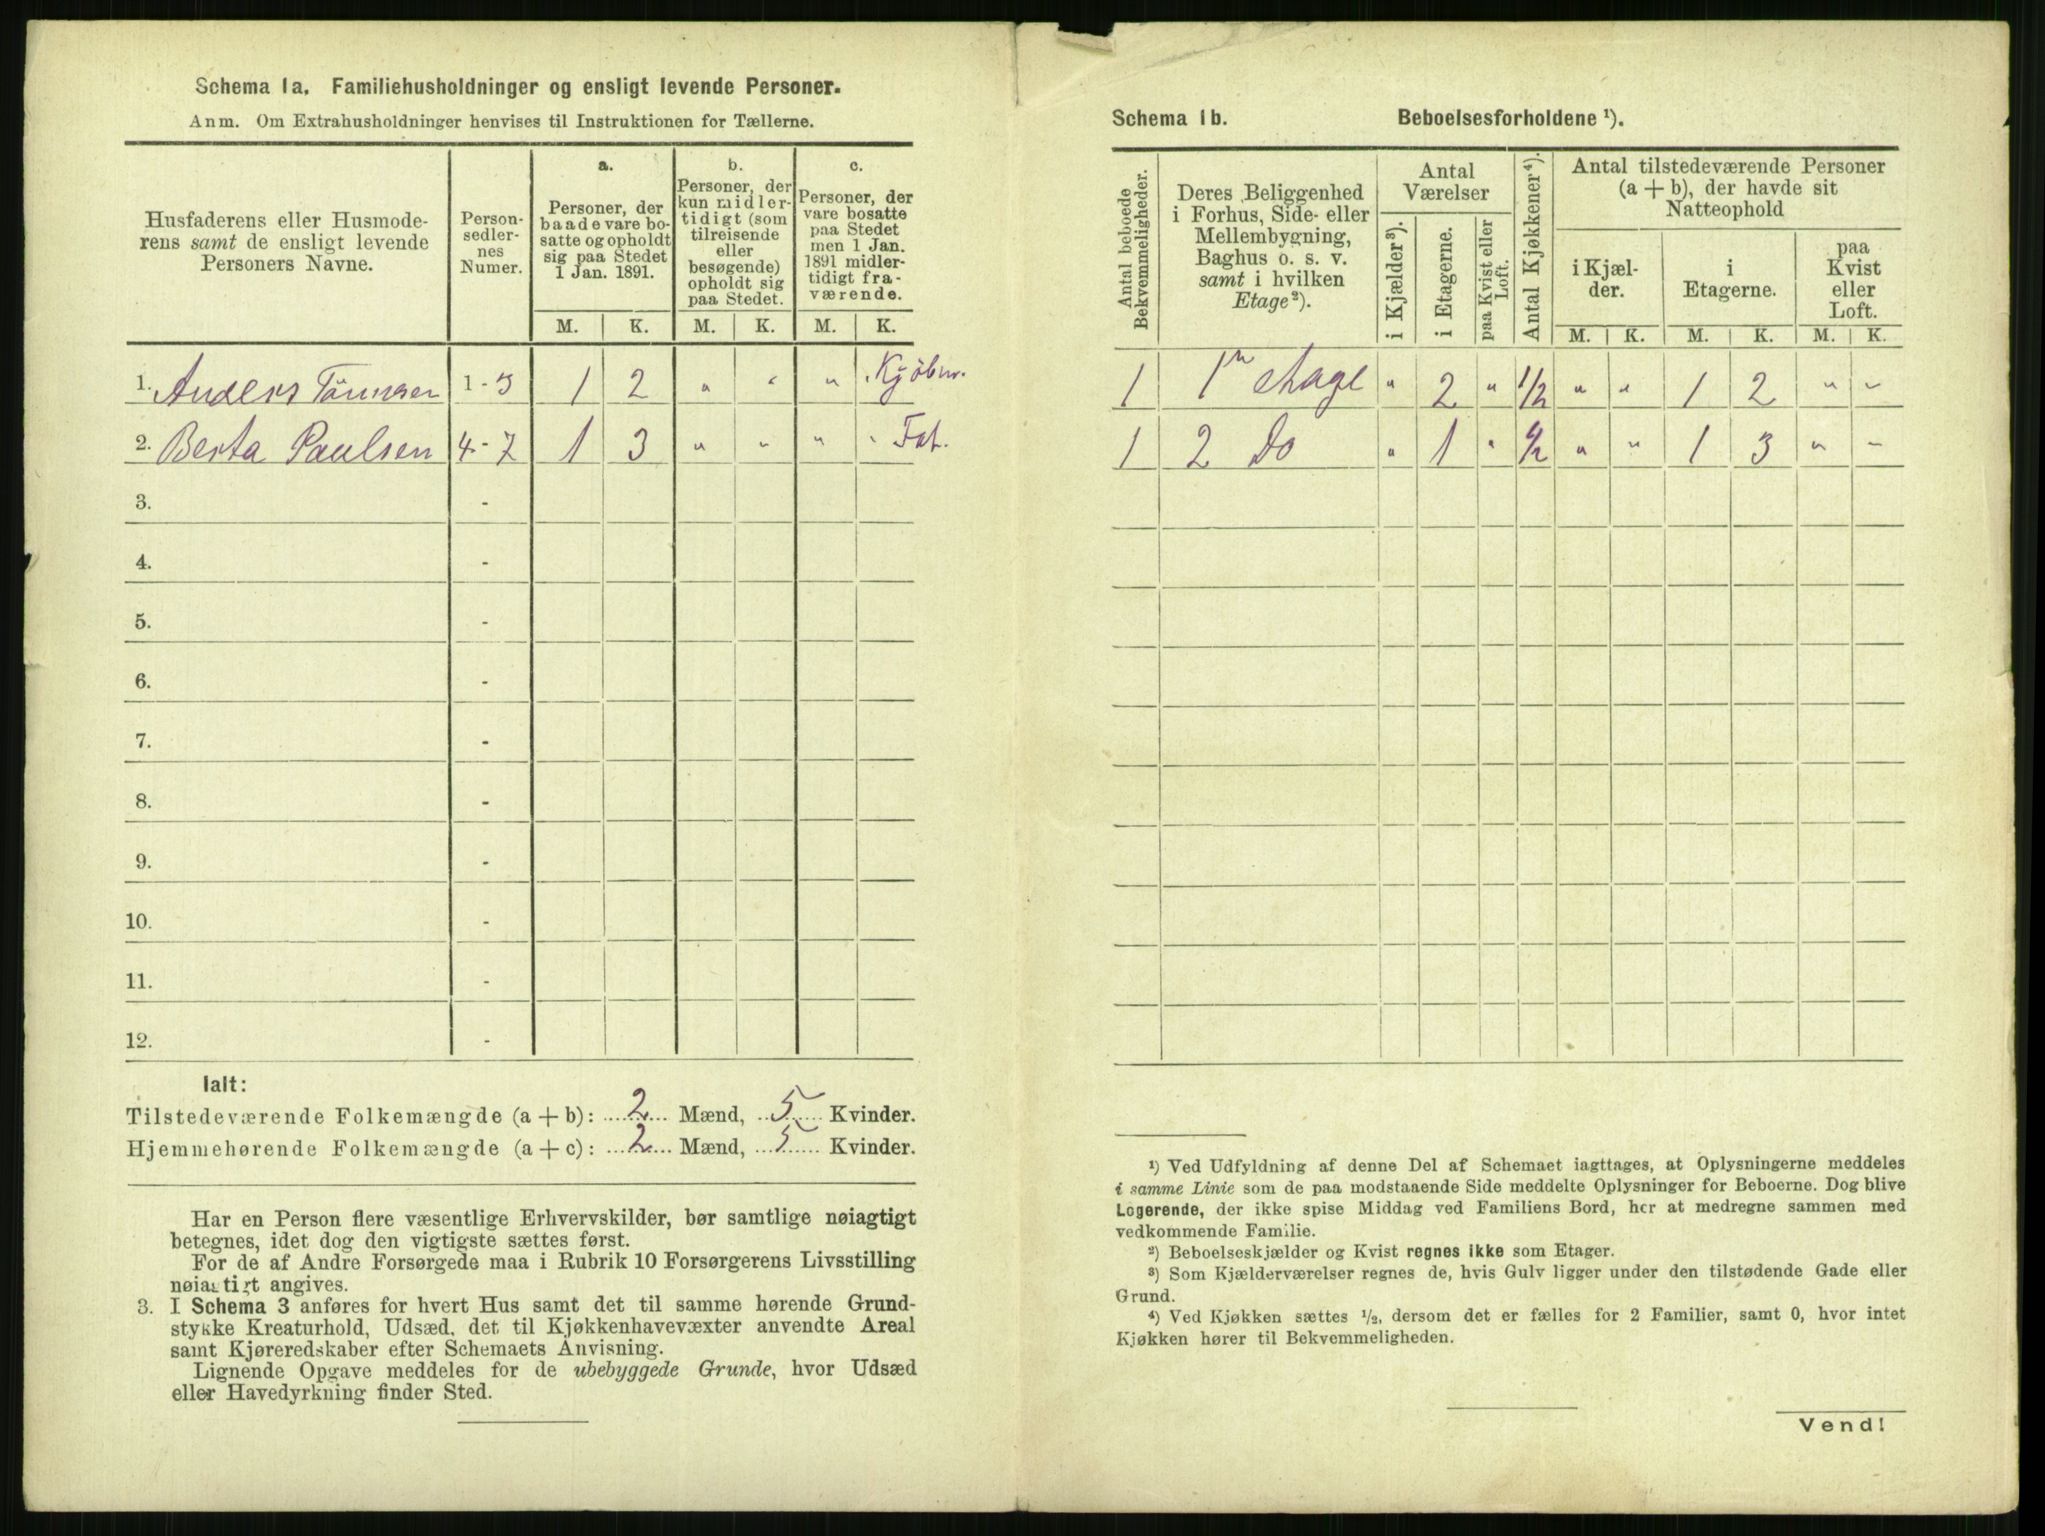 Schema 1a. Familiehusholdninger og ensligt levende Personer.
Anm. Om Extrahusholdninger henvises til Instruktionen for Tællerne.
Husfaderens eller Husmode-
rens samt de ensligt levende
Personers Navne.
Person-
sedler-
nes
Numer.
a.
Personer, der
baade vare bo-
satte og opholdt
sig paa Stedet
1 Jan. 1891.
b.
Personer, der
kun midler-
tidigt (som
tilreisende
eller
besøgende)
opholdt sig
paa Stedet.
c.
Personer, der
vare bosatte
paa Stedet
men 1 Jan.
1891 midler-
tidigt fra-
værende.
M. K. M. K. M. K.
1. Anders Tönnesen 1 - 3 1 2 " " " Kjöbm.
2. Berta Paulsen 4 - 7 1 3 " " " " Fat.
3. -
4. -
5. -
6. -
7. -
8. -
9. -
10. -
11. -
12. -
Ialt:
Tilstedeværende Folkemængde (a + b): 2 Mænd, 5 Kvinder.
Hjemmehørende Folkemængde (a + c): 2 Mænd, 5 Kvinder.
Har en Person flere væsentlige Erhvervskilder, bør samtlige nøiagtigt
betegnes, idet dog den vigtigste sættes først.
For de af Andre Forsørgede maa i Rubrik 10 Forsørgerens Livsstilling
nøiagtigt angives.
3. I Schema 3 anføres for hvert Hus samt det til samme hørende Grund-
stykke Kreaturhold, Udsæd, det til Kjøkkenhavevæxter anvendte Areal
samt Kjøreredskaber efter Schemaets Anvisning.
Lignende Opgave meddeles for de ubebyggede Grunde, hvor Udsæd
eller Havedyrkning finder Sted.
Schema 1b. Beboelsesforholdene ¹).
Antal beboede
Bekvemmeligheder.
Deres Beliggenhed
i Forhus, Side- eller
Mellembygning,
Baghus o. s. v.
samt i hvilken
Etage²).
Antal
Værelser
i Kjælder³).
i Etagerne.
paa Kvist eller
Loft.
Antal Kjøkkener⁴).
Antal tilstedeværende Personer
(a + b), der havde sit
Natteophold
i Kjæl-
der.
i
Etagerne.
paa
Kvist
eller
Loft.
M. K. M. K. M. K.
1 1ste Etage " 2 " 1/2 " " 1 2 " "
1 2 Do " 1 " 1/2 " " 1 3 " "
¹) Ved Udfyldning af denne Del af Schemaet iagttages, at Oplysningerne meddeles
i samme Linie som de paa modstaaende Side meddelte Oplysninger for Beboerne. Dog blive
Logerende, der ikke spise Middag ved Familiens Bord, her at medregne sammen med
vedkommende Familie.
²) Beboelseskjælder og Kvist regnes ikke som Etager.
³) Som Kjælderværelser regnes de, hvis Gulv ligger under den tilstødende Gade eller
Grund.
⁴) Ved Kjøkken sættes ½, dersom det er fælles for 2 Familier, samt 0, hvor intet
Kjøkken hører til Bekvemmeligheden.
Vend!